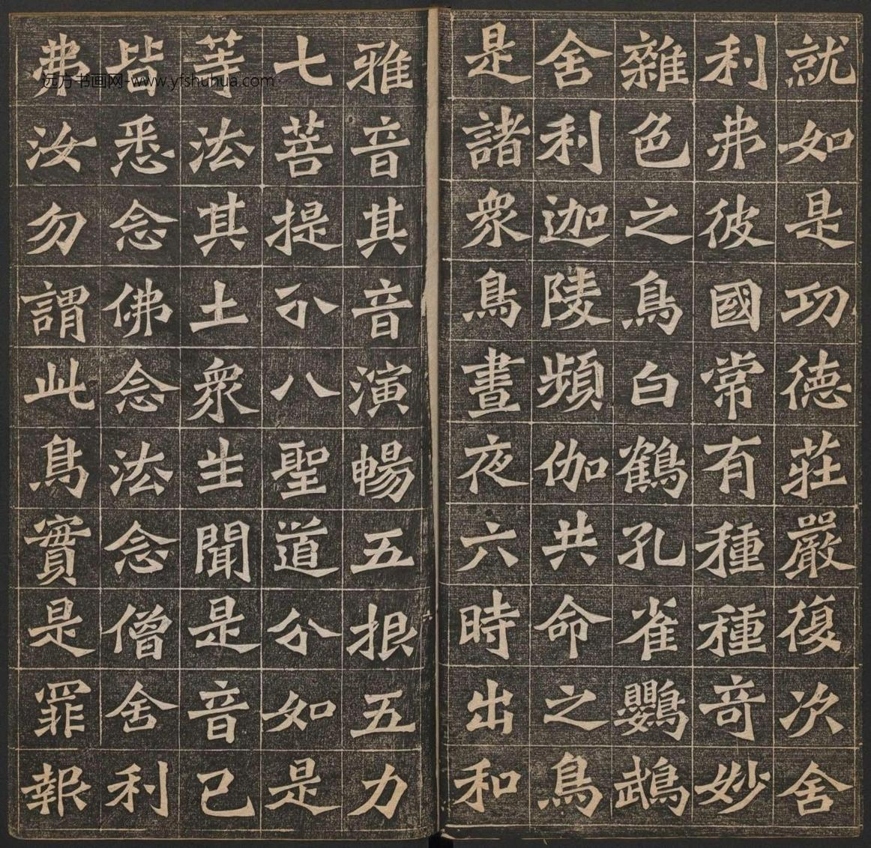 就如是功德莊嚴復次舍
利弗彼國常有種種奇妙
雜色之鳥白鶴孔雀鸚鵡
舍利迦陵頻伽共命之鳥
是諸衆鳥晝夜六時出和
雅音其音演暢五根五力
七菩提分八聖道分如是
等法其土衆生聞是音已
皆悉念佛念法念僧舍利
弗汝勿謂此鳥實是罪報
远方书画网-www.yfshuhua.com